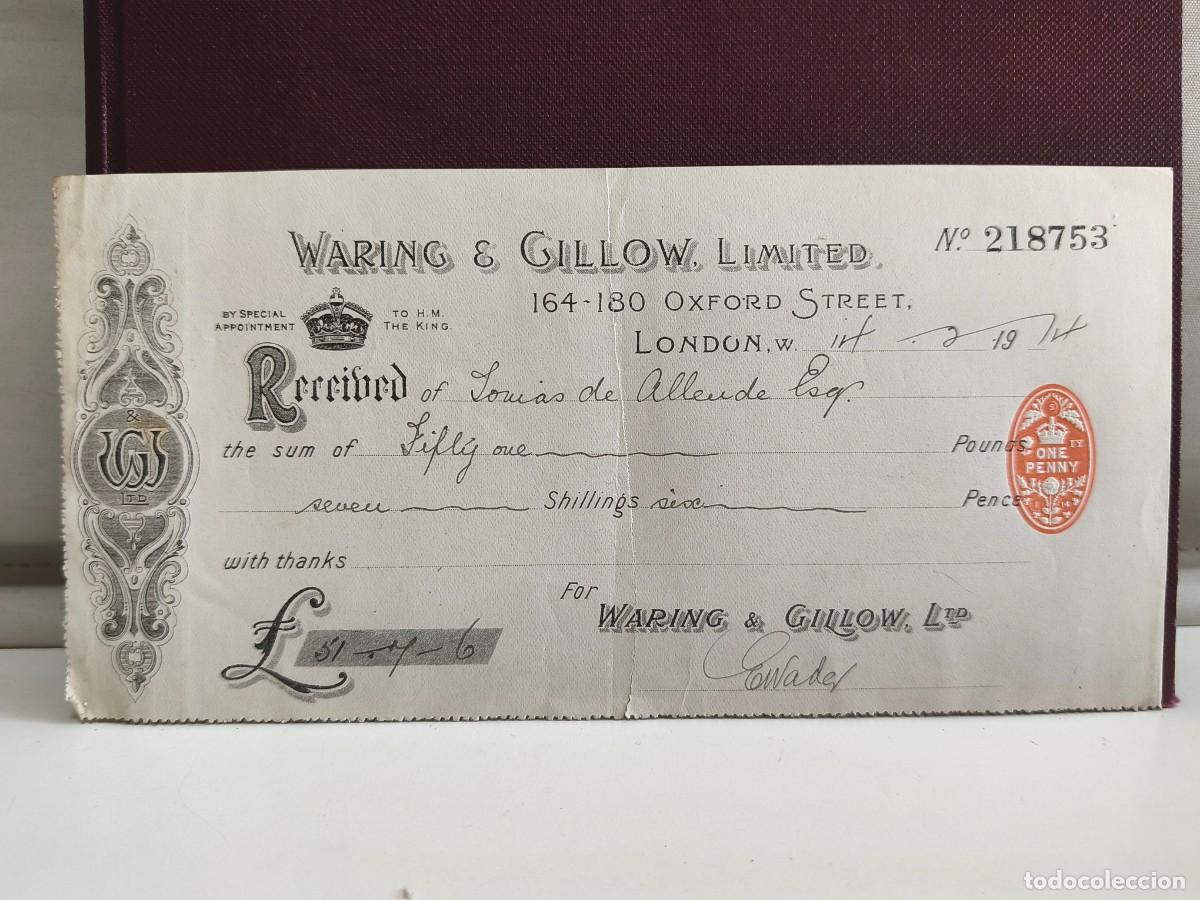 WARING & GILLOW, LIMITED.
Nº 218753
164-180 OXFORD STREET,
BY SPECIAL APPOINTMENT
TO H.M. THE KING.
LONDON, W. 14 . 2 1914
Received of Tomas de Allende Esq.
the sum of Fifty one Pounds
seven Shillings six Pence
with thanks
For
WARING & GILLOW, LTD
£ 51 - 7 - 6
& WG LTD
ONE PENNY
todocoleccion